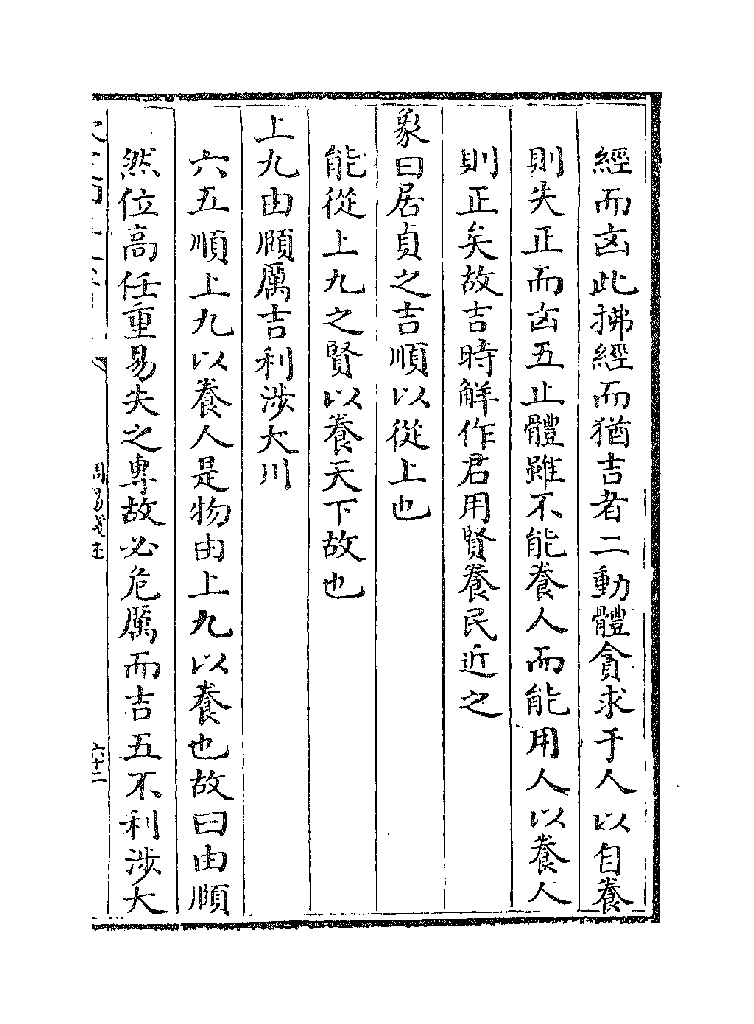 經而凶此拂經而猶吉者二動體貪求于人以自養
則失正而凶五止體雖不能養人而能用人以養人
則正矣故吉時解作君用賢養民近之
象曰居貞之吉順以從上也
能從上九之賢以養天下故也
上九由頤厲吉利涉大川
六五順上九以養人是物由上九以養也故曰由頤
然位高任重易失之專故必危厲而吉五不利涉大
周易淺註
六十二